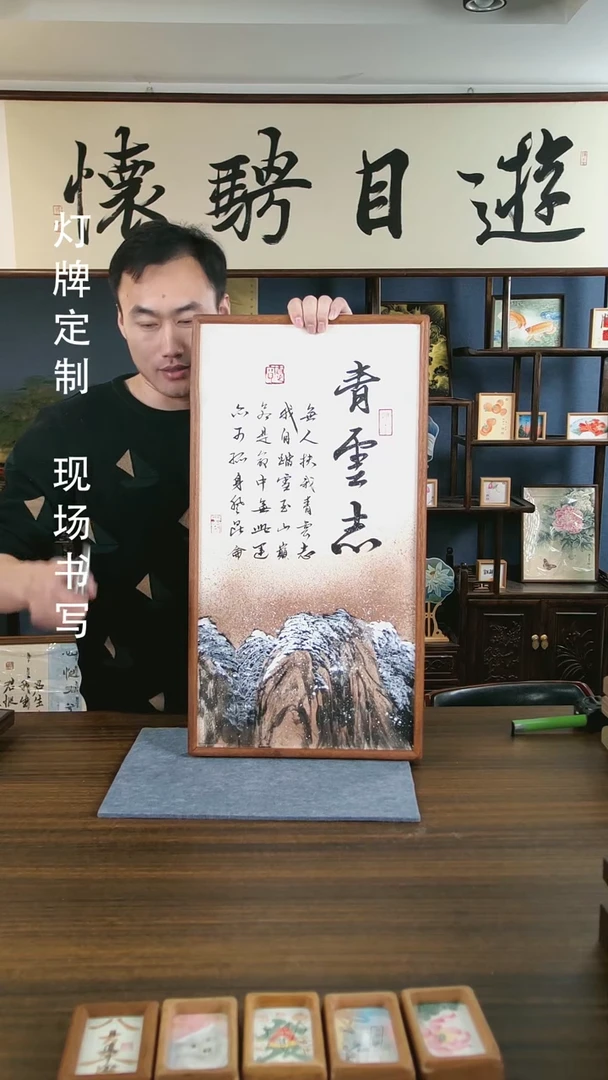 遊目騁懷
灯牌定制 现场书写
青雲志
無人扶我青雲志
我自踏雪至山巔
若是命中無此運
亦可孤身登崑侖